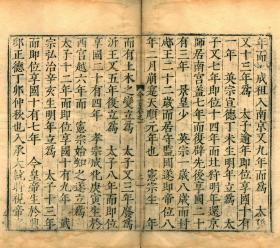 年而 成祖入南京又九年而爲
又十三年爲 太子逾年即位享國十有
一年 英宗宣德丁未生明年立爲 太
子又七年即位十四年而北狩明年還京
師居南宮蓋七年而復辟先後享國二十有
二年 景皇少 英宗一歲八歲而封
郕王二十二歲而居守監國遂即帝位八
年一月崩是天順元年也 憲宗生二年
而有土木之變立爲 太子又三年廢爲
沂王又五年復立爲 太子又八年而即位
享國二十有四年 孝宗成化庚寅生於
西宮越六年而 憲宗始知之遂立爲
太子十二年而即位享國十有九年 武
宗弘治辛亥生明年立爲 太子十有三年
而即位享國十有七年 今皇帝生於興
邸正德丁卯仲秋也入承大統